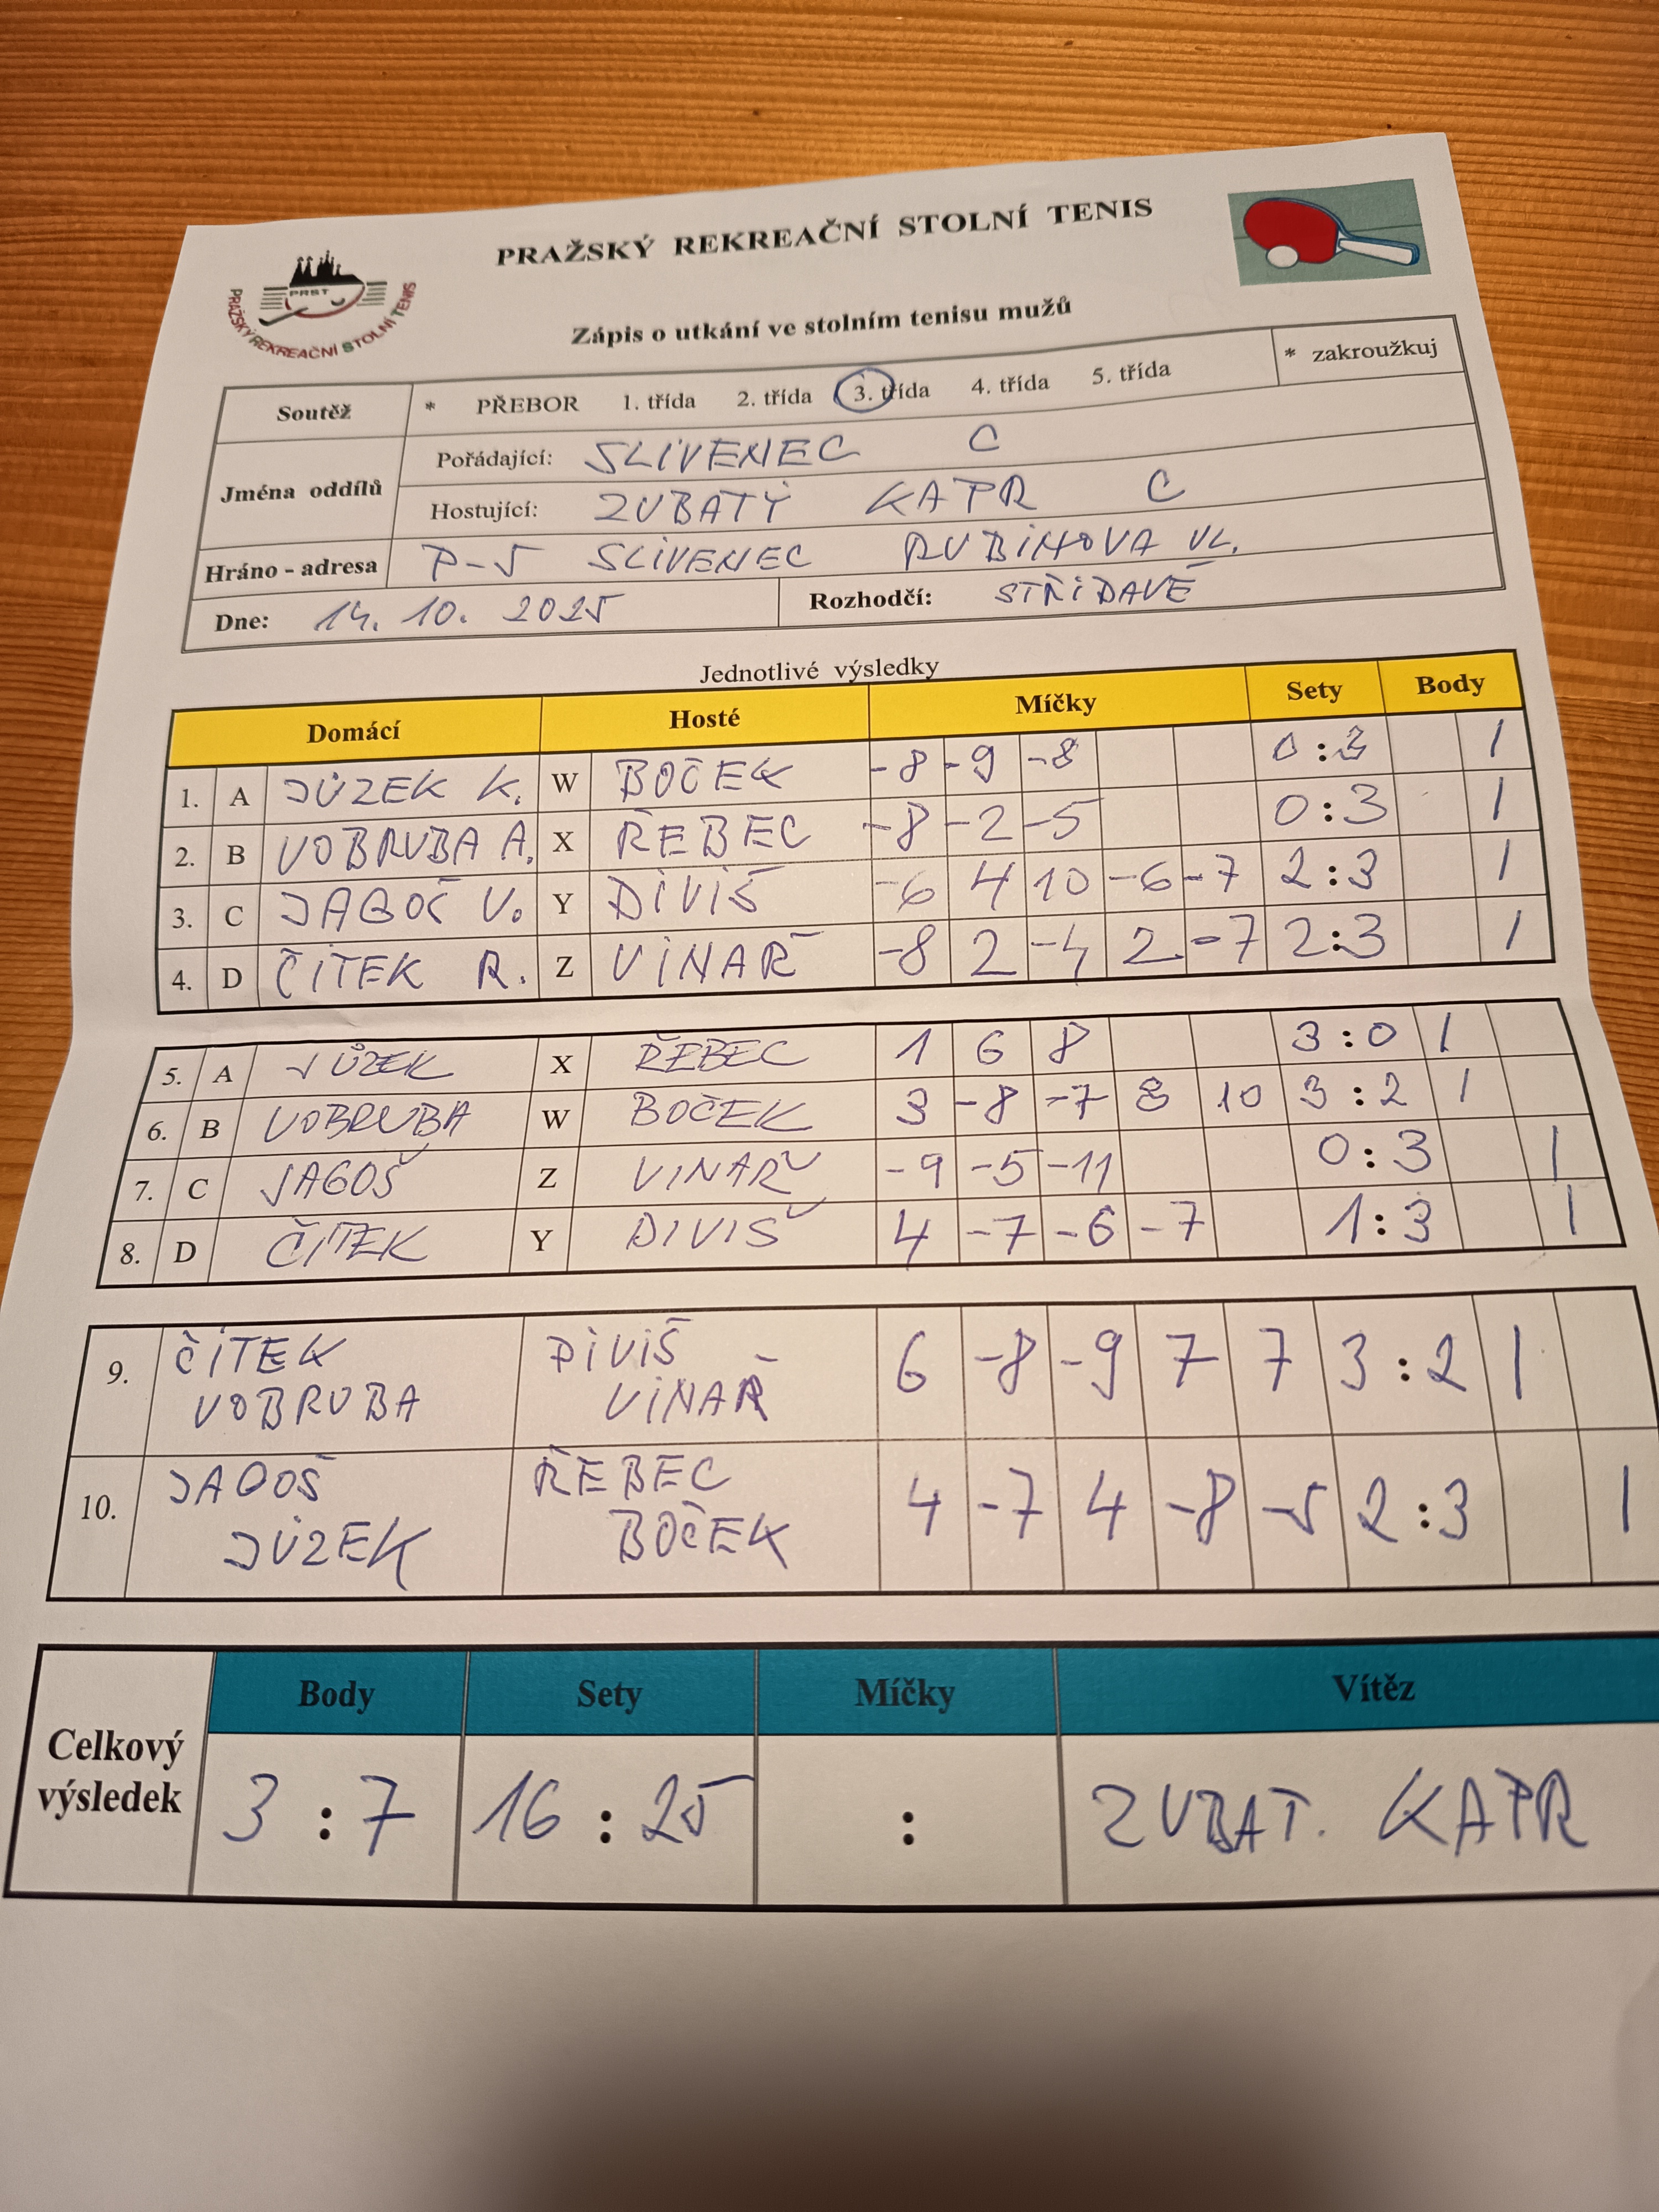 PRAŽSKÝ REKREAČNÍ STOLNÍ TENIS
PRST
PRAŽSKÝ REKREAČNÍ STOLNÍ TENIS
Zápis o utkání ve stolním tenisu mužů
Soutěž * PŘEBOR 1. třída 2. třída 3. třída 4. třída 5. třída * zakroužkuj
Jména oddílů
Pořádající: SLIVENEC C
Hostující: ZUBATÝ KAPR C
Hráno - adresa P-5 SLIVENEC RUBÍNOVA UL.
Dne: 14. 10. 2025 Rozhodčí: STŘÍDAVĚ
Jednotlivé výsledky
Domácí Hosté Míčky Sety Body
1. A JŮZEK K. W BOČEK -8 -9 -8 0:3 1
2. B VOBRUBA A. X ŘEBEC -8 -2 -5 0:3 1
3. C JAGOŠ V. Y DIVIŠ -6 4 10 -6 -7 2:3 1
4. D ČÍTEK R. Z VINAŘ -8 2 -4 2 -7 2:3 1
5. A JŮZEK X ŘEBEC 1 6 8 3:0 1
6. B VOBRUBA W BOČEK 3 -8 -7 8 10 3:2 1
7. C JAGOŠ Z VINAŘ -9 -5 -11 0:3 1
8. D ČÍTEK Y DIVIŠ 4 -7 -6 -7 1:3 1
9. ČÍTEK DIVIŠ 6 -8 -9 7 7 3:2 1
VOBRUBA VINAŘ
10. JAGOŠ ŘEBEC 4 -7 4 -8 -5 2:3 1
JŮZEK BOČEK
Celkový výsledek
Body Sety Míčky Vítěz
3 : 7 16 : 25 : ZUBAT. KAPR